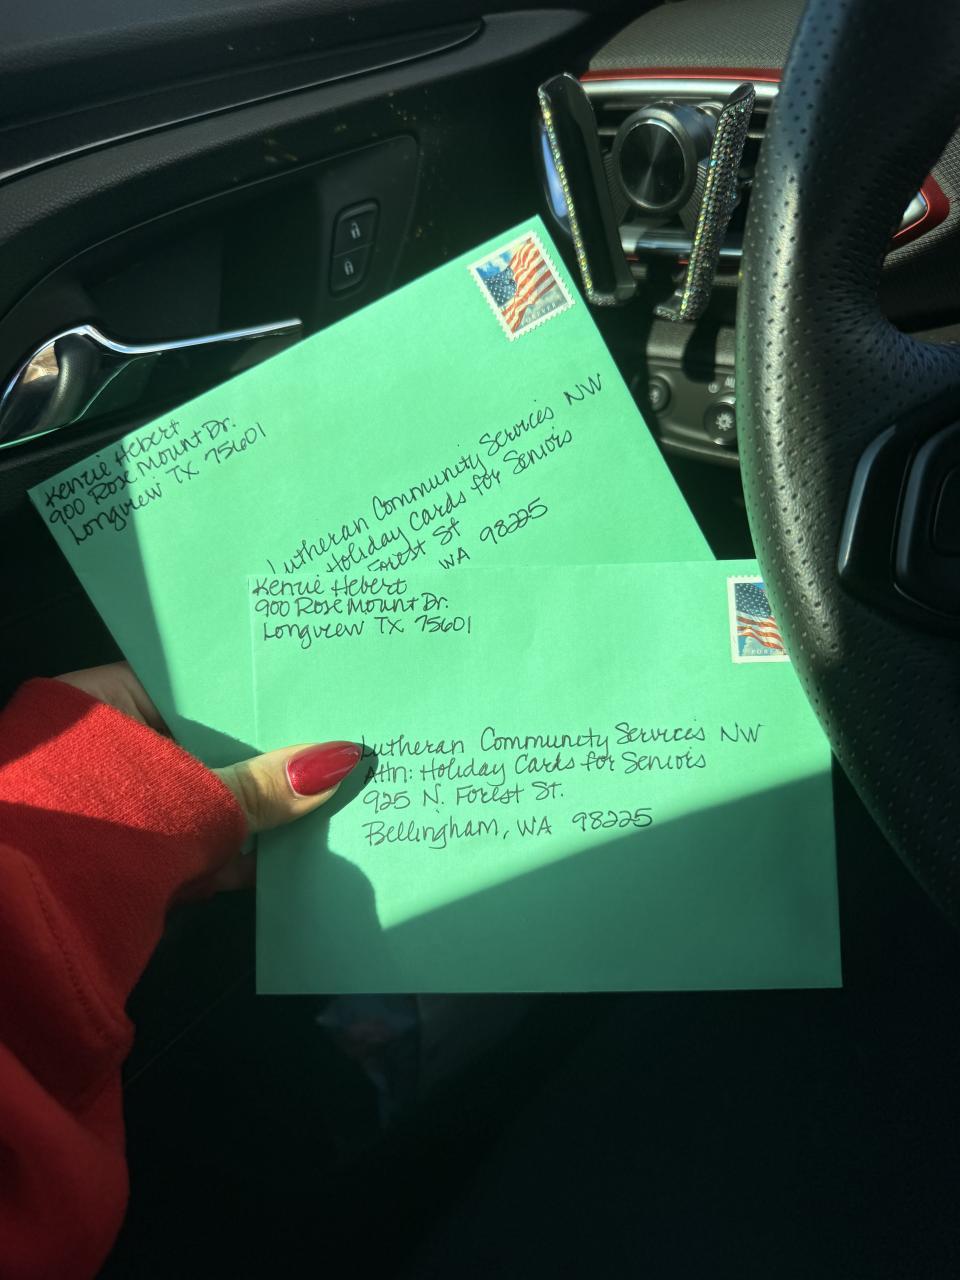 FOREVER
Kenzie Hebert
900 Rose Mount Dr.
Longview TX 75601
Lutheran Community Services NW
Holiday Cards for Seniors
Forest St
WA 98225
Kenzie Hebert
900 Rose Mount Dr.
Longview TX 75601
FOREVER
Lutheran Community Services NW
Attn: Holiday Cards for Seniors
925 N. Forest St.
Bellingham, WA 98225